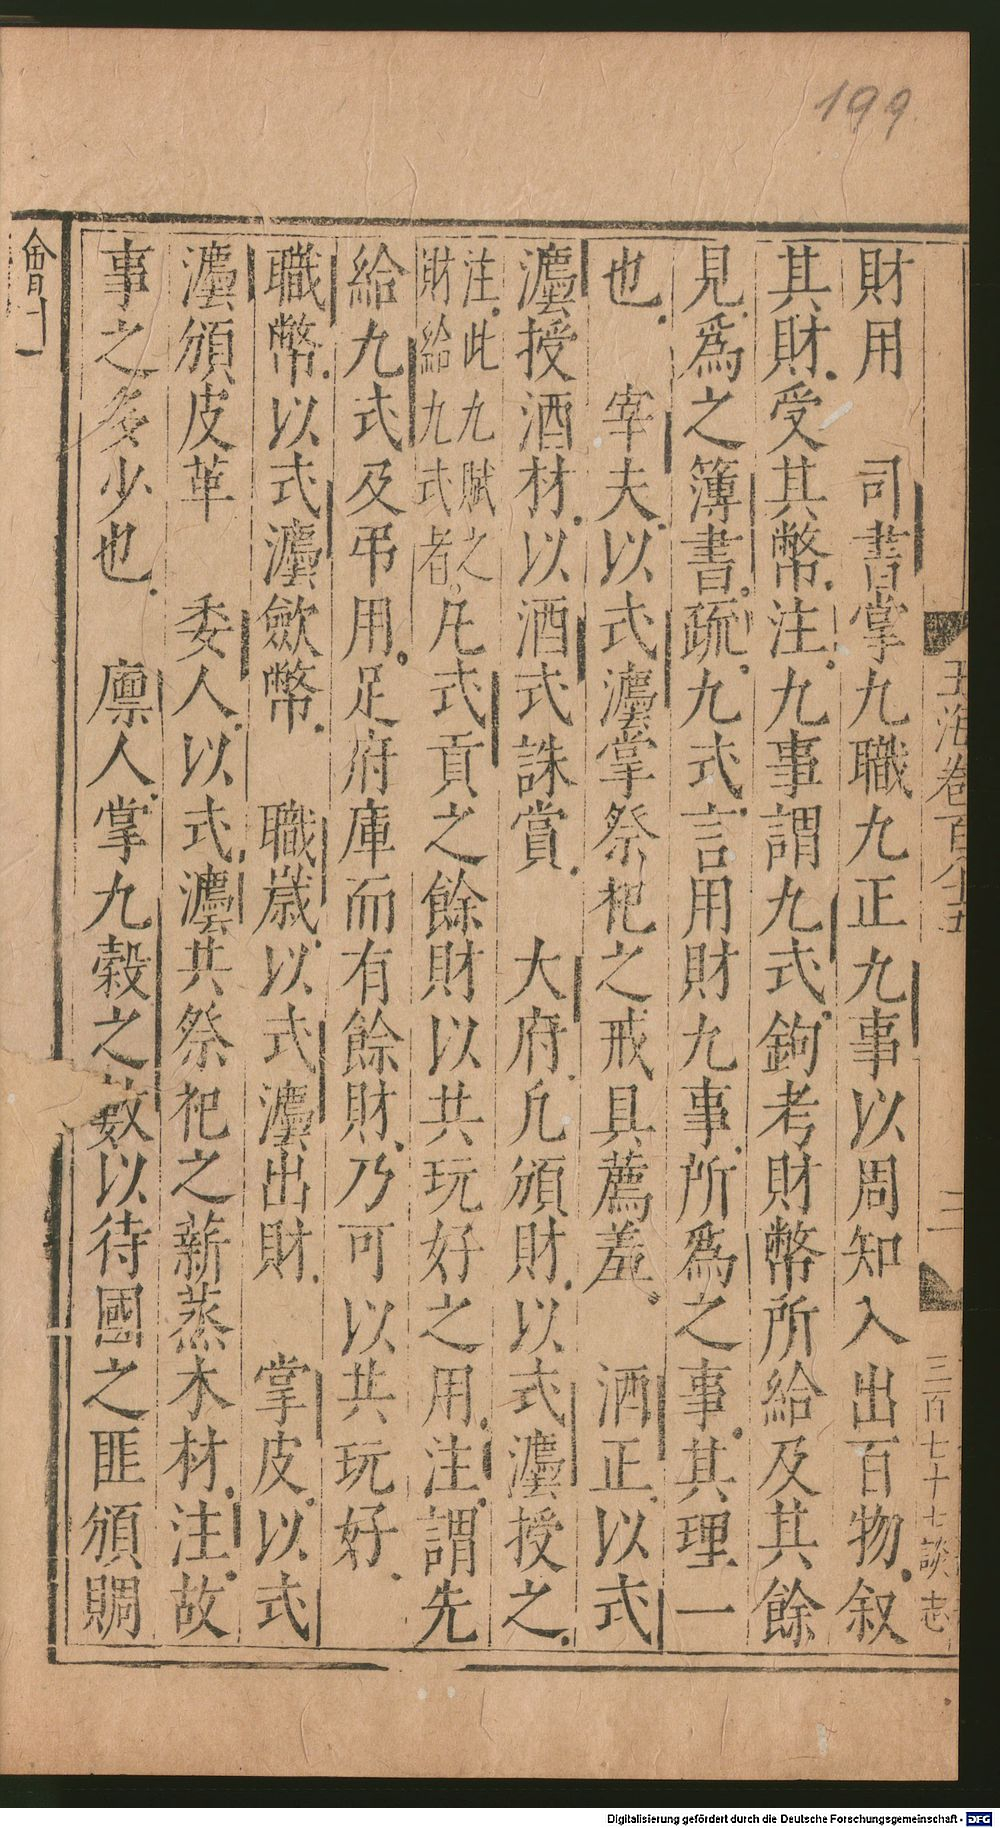 199
玉海卷百八十五
二
三百七十七談志
財用　司書掌九職九正九事以周知入出百物叙
其財受其幣注九事謂九式鉤考財幣所給及其餘
見爲之簿書疏九式言用財九事所爲之事其理一
也　宰夫以式灋掌祭祀之戒具薦羞　酒正以式
灋授酒材以酒式誅賞　大府凡頒財以式灋授之
注此九賦之
財給九式者
凡式貢之餘財以共玩好之用注謂先
給九式及弔用足府庫而有餘財乃可以共玩好
職幣以式灋斂幣　職歲以式灋出財　掌皮以式
灋頒皮革　委人以式灋共祭祀之薪蒸木材注故
事之多少也　廩人掌九榖之數以待國之匪頒賙
會
Digitalisierung gefördert durch die Deutsche Forschungsgemeinschaft - DFG